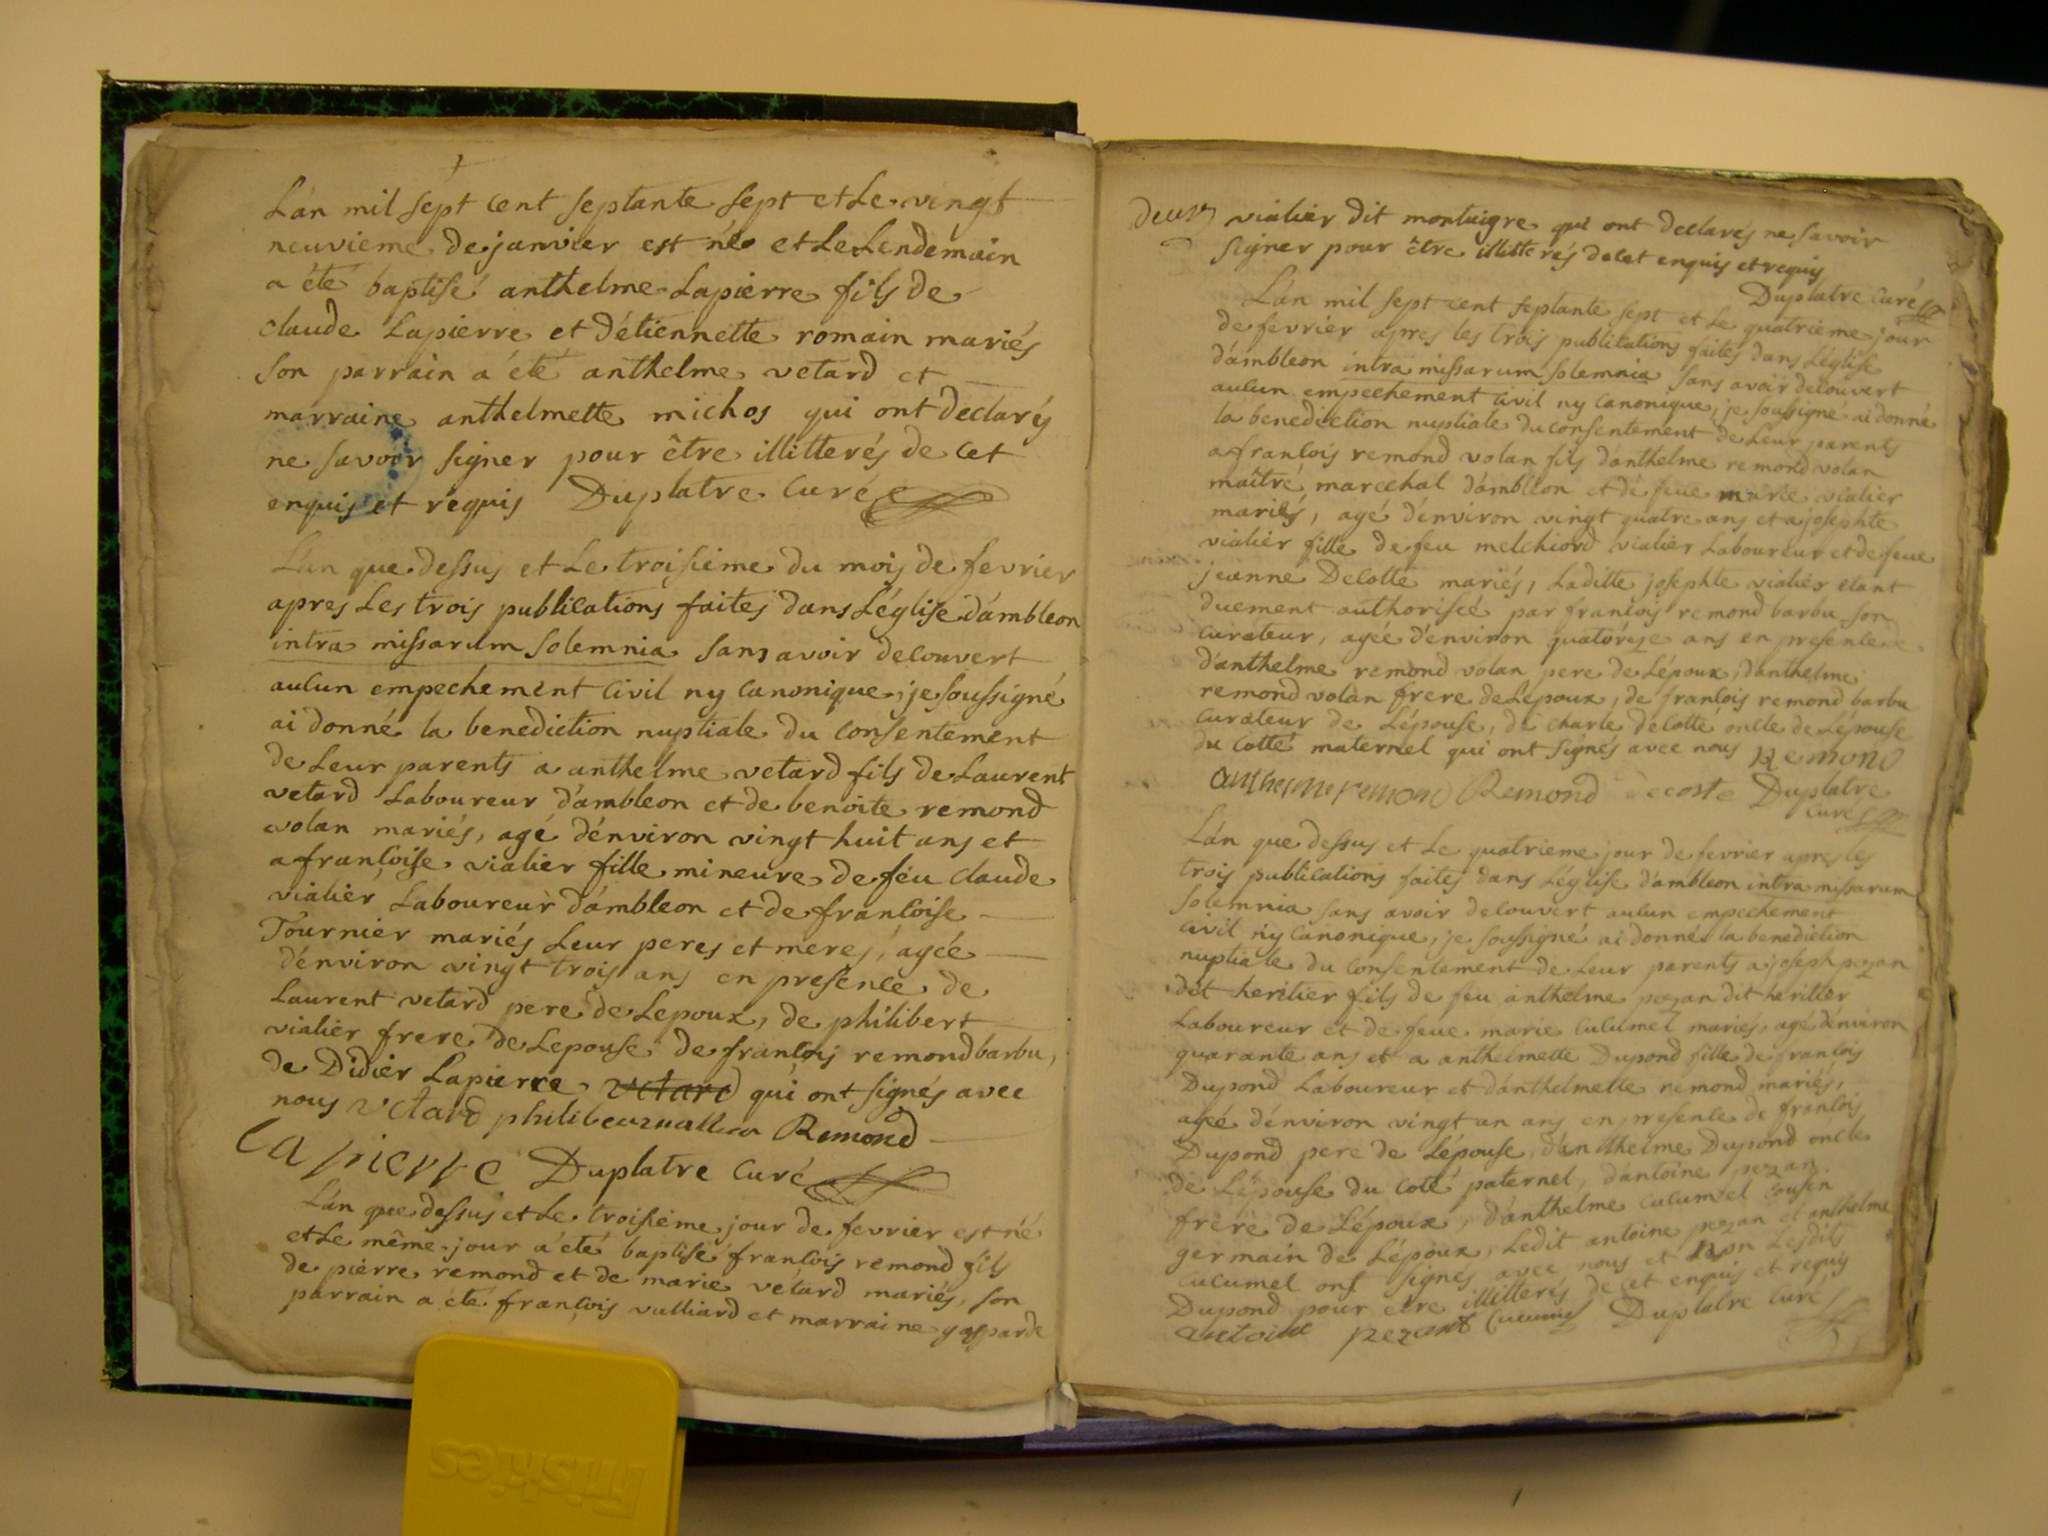 L'an mil sept cent septante sept et Le vingt
neuvieme de janvier est né et Le Lendemain
a été baptisé anthelme Lapierre fils de
claude Lapierre et d'étiennette romain mariés
son parrain a été anthelme vetard et
marraine anthelmette michos qui ont declarés
ne savoir signer pour être illitterés de cet
enquis et requis Duplatre Curé
L'an que dessus et Le troisieme du mois de fevrier
apres Les trois publications faites dans L'église d'ambleon
intra missarum solemnia sans avoir decouvert
aucun empechement civil ny canonique, je soussigné
ai donné la benediction nuptiale du consentement
de Leur parents a anthelme vetard fils de Laurent
vetard Laboureur d'ambleon et de benoite remond
volan mariés, agé d'environ vingt huit ans et
a françoise vialier fille mineure de feu claude
vialier Laboureur d'ambleon et de françoise
Tournier mariés Leur peres et meres, agée
d'environ vingt trois ans en presence de
Laurent vetard pere de Lepoux, de philibert
vialier frere de Lepouse de françois remond barbu,
de Didier Lapierre vetard qui ont signés avec
nous vetard Remond
Lapierre Duplatre Curé
L'an que dessus et Le troisieme jour de fevrier est né
et Le même jour a été baptisé françois remond fils
de pierre remond et de marie vetard mariés, son
parrain a été françois vulliard et marraine gasparde
deux vialier dit montaigre qui ont declarés ne savoir
signer pour être illitterés de cet enquis et requis
Duplatre Curé
L'an mil sept cent septante sept et Le quatrieme jour
de fevrier apres les trois publications faites dans L'église
d'ambleon intra missarum solemnia sans avoir decouvert
aucun empechement civil ny canonique, je soussigné ai donné
la benediction nuptiale du consentement de Leur parents
a françois remond volan fils d'anthelme remond volan
maître marechal d'ambleon et de feue marie vialier
mariés, agé d'environ vingt quatre ans et a josephte
vialier fille de feu melchiord vialier Laboureur et de feue
jeanne Decotte mariés, Laditte josephte vialier etant
duement authorisée par françois remond barbu son
curateur, agée d'environ quatorze ans en presence
d'anthelme remond volan pere de L'époux, d'anthelme
remond volan frere de L'époux, de françois remond barbu
curateur de L'épouse, de charle decotte oncle de L'épouse
du cotté maternel qui ont signés avec nous Remond
anthelme remond Remond decoste Duplatre
Curé
L'an que dessus et Le quatrieme jour de fevrier apres les
trois publications faites dans L'église d'ambleon intra missarum
solemnia sans avoir decouvert aucun empechement
civil ny canonique, je soussigné ai donné la benediction
nuptiale du consentement de Leur parents a joseph pezan
dit heritier fils de feu anthelme pezan dit heritier
Laboureur et de feue marie cucumel mariés, agé d'environ
quarante ans et a anthelmette Dupond fille de françois
Dupond Laboureur et d'anthelmette remond mariés,
agée d'environ vingt un ans en presence de françois
Dupond pere de L'épouse, d'anthelme Dupond oncle
de L'épouse du coté paternel, d'antoine pezan
frere de L'époux, d'anthelme cucumel cousin
germain de L'époux, Ledit antoine pezan et anthelme
cucumel ont signés avec nous et non Lesdits
Dupond pour etre illitterés de cet enquis et requis
antoine pezant Cucumel Duplatre Curé
friskies